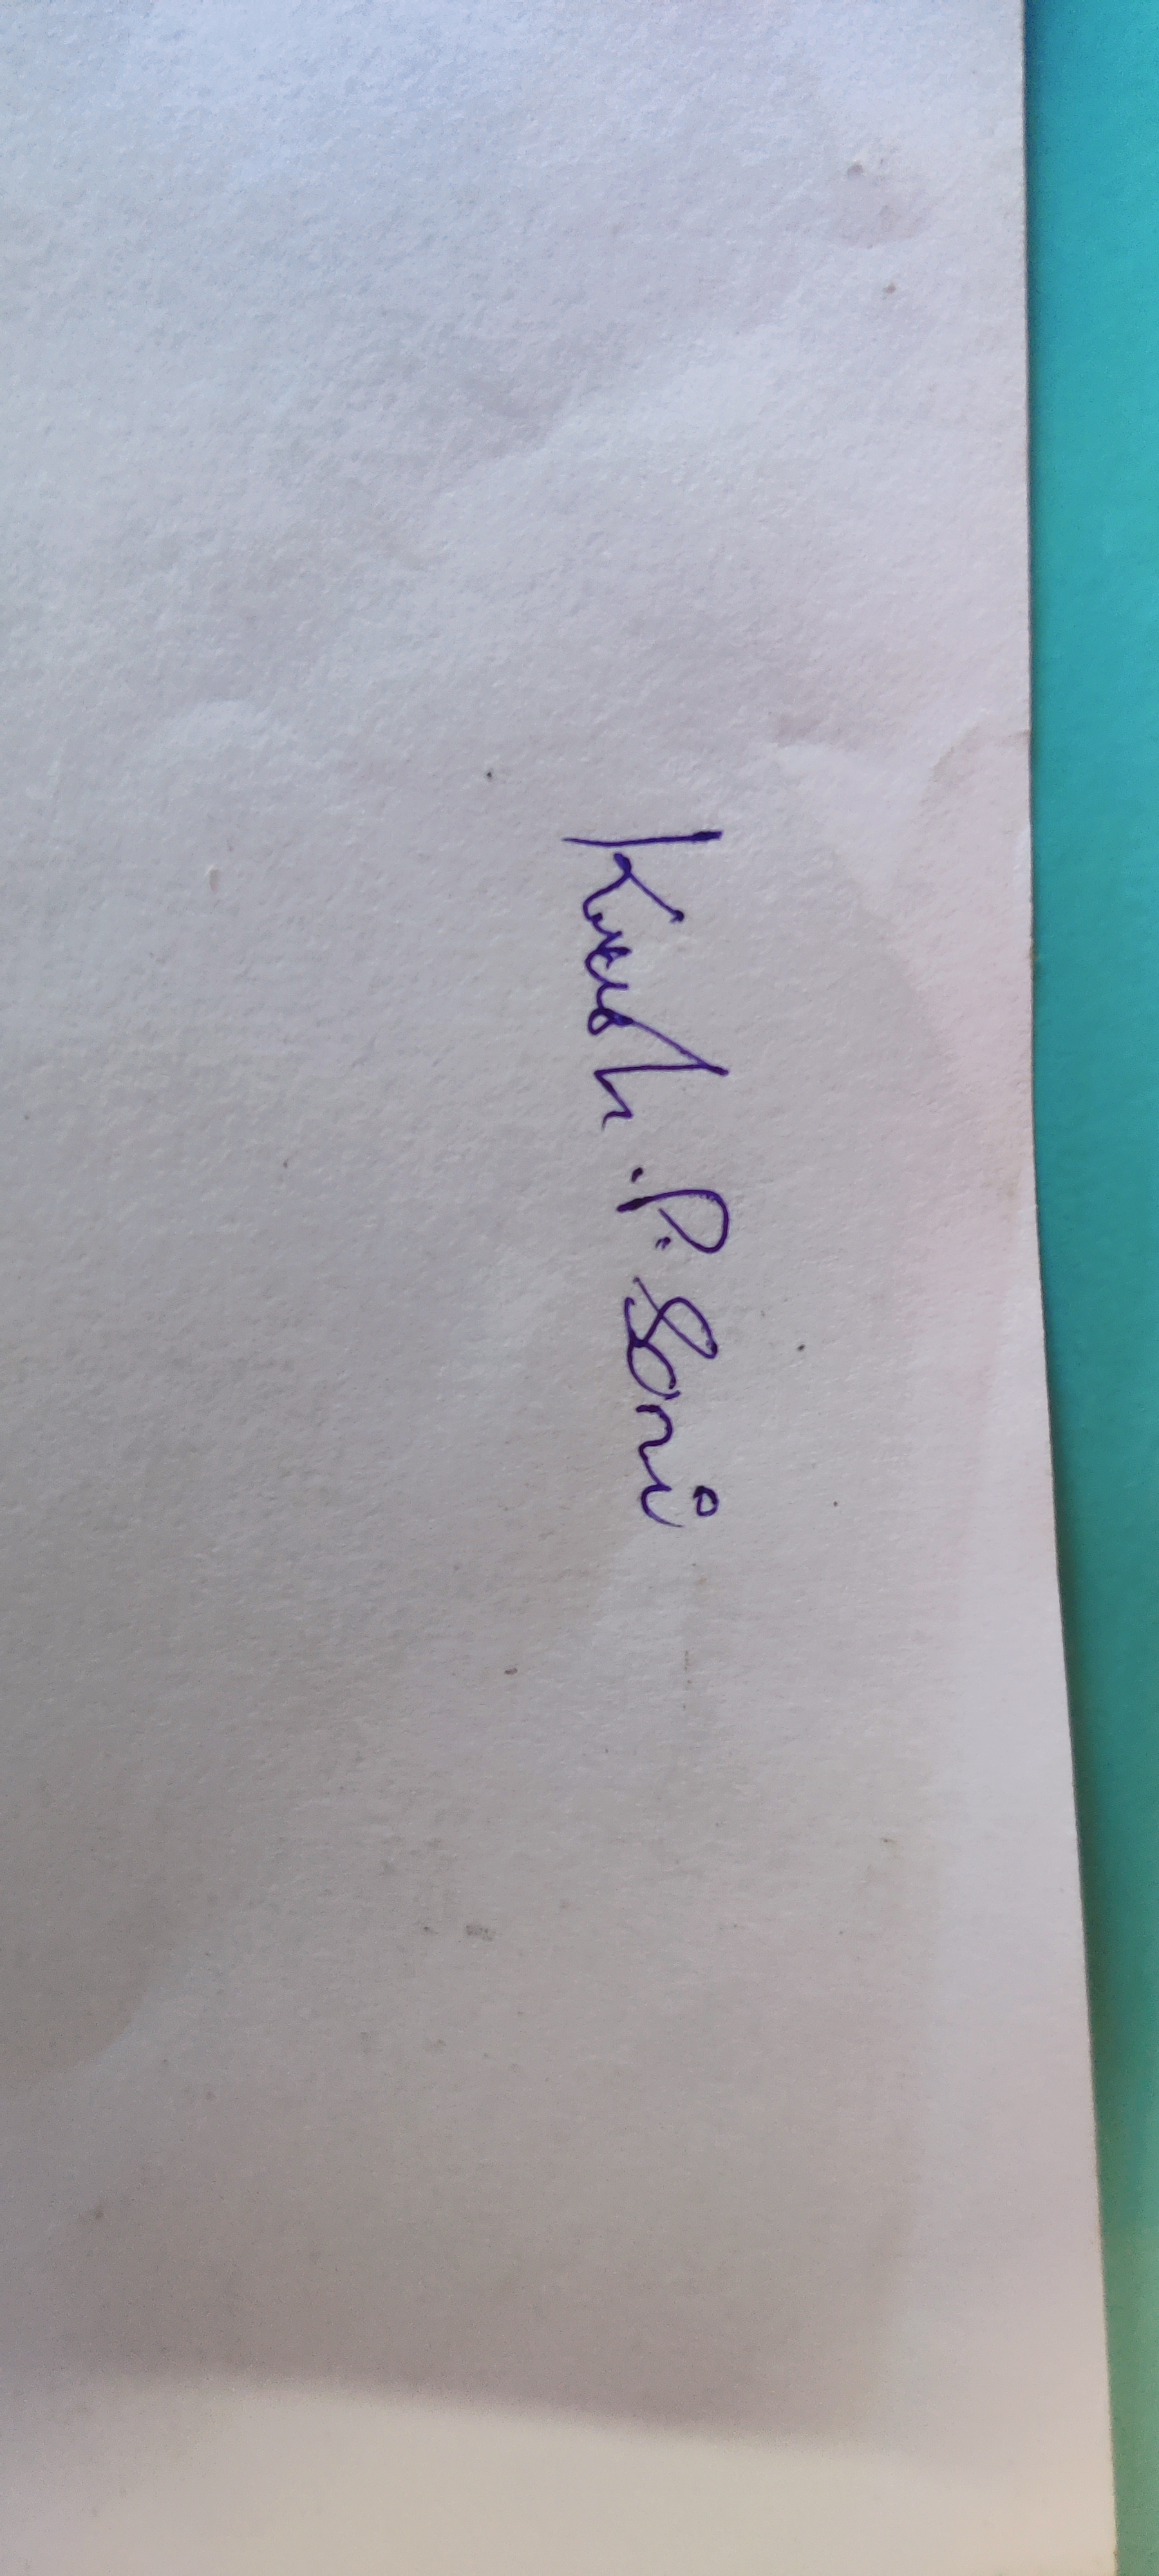 Kush .P. Soni